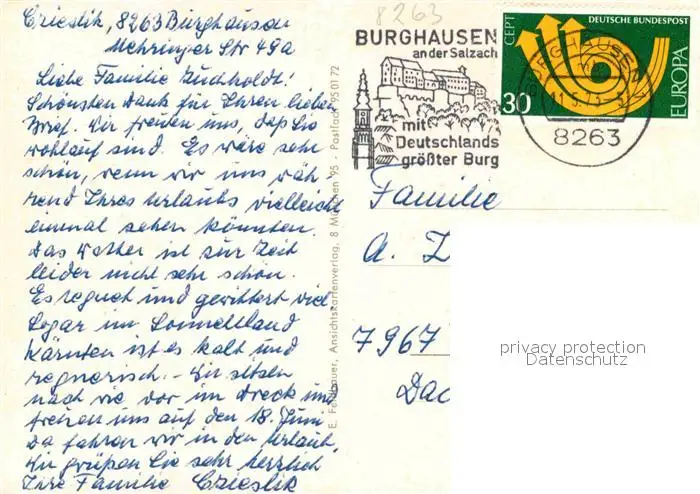 Czieslik, 8263 Burghausen
Mehringer Str 49a
Liebe Familie Zuchholdt!
Schönsten Dank für Ihren lieben
Brief. Wir freuen uns, daß Sie
wohlauf sind. Es wäre sehr
schön, wenn wir uns wäh-
rend Ihres Urlaubs vielleicht
einmal sehen könnten.
Das Wetter ist zur Zeit
leider nicht sehr schön.
Es regnet und gewittert viel
Sogar im Sonnenland
Kärnten ist es kalt und
regnerisch. - Wir sitzen
nach wie vor im Dreck und
freuen uns auf den 18. Juni
Da fahren wir in den Urlaub.
Wir grüßen Sie sehr herzlich
Ihre Familie Czieslik
E. Feichtbauer, Ansichtskartenverlag, 8 München 95 - Postfach 95 01 72
8263
BURGHAUSEN
an der Salzach
mit
Deutschlands
größter Burg
BURGHAUSEN
8263
CEPT
DEUTSCHE BUNDESPOST
EUROPA
30
Familie
A. Z
7967
Dac
privacy protection
Datenschutz